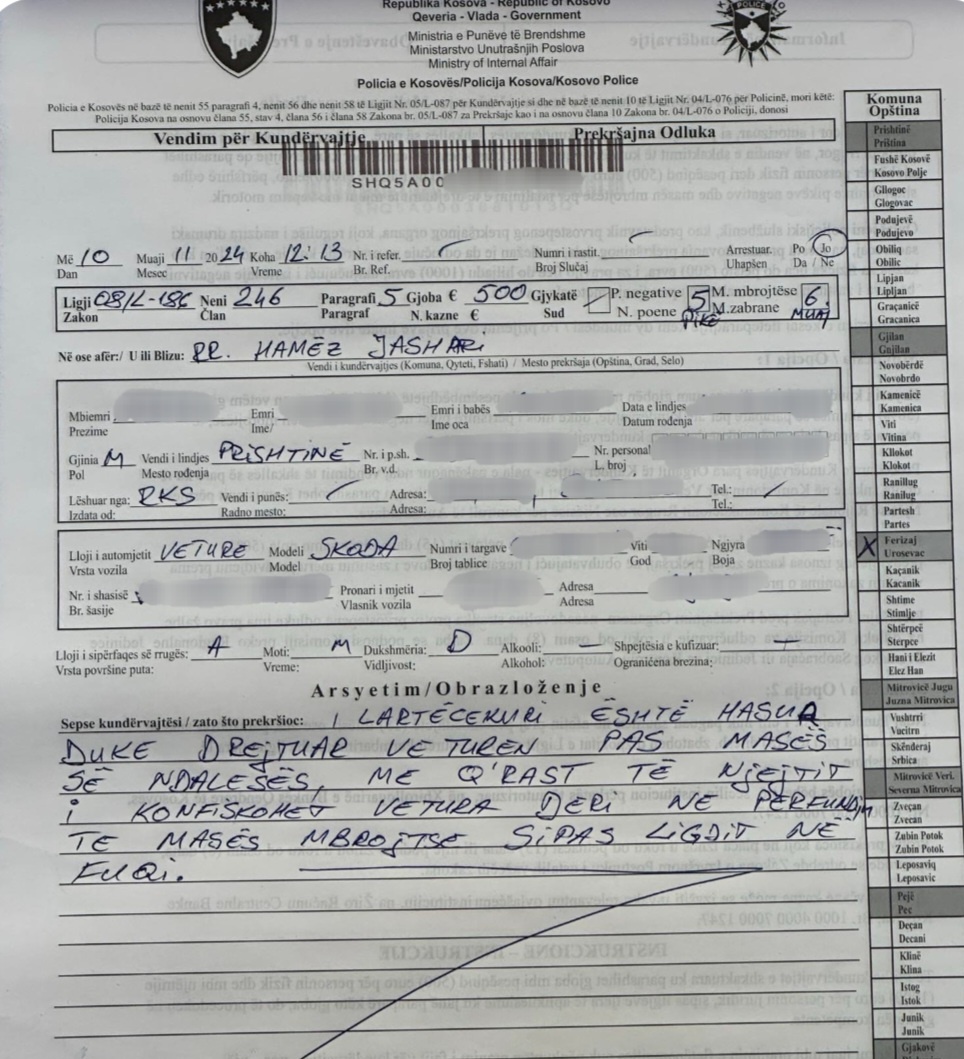 Republika Kosova - Republic of Kosovo
Qeveria - Vlada - Government
Ministria e Punëve të Brendshme
Ministarstvo Unutrašnjih Poslova
Ministry of Internal Affair
Policia e Kosovës/Policija Kosova/Kosovo Police
POLICE
Policia e Kosovës në bazë të nenit 55 paragrafi 4, nenit 56 dhe nenit 58 të Ligjit Nr. 05/L-087 për Kundërvajtje si dhe në bazë të nenit 10 të Ligjit Nr. 04/L-076 për Policinë, mori këtë:
Policija Kosova na osnovu člana 55, stav 4, člana 56 i člana 58 Zakona br. 05/L-087 za Prekršaje kao i na osnovu člana 10 Zakona br. 04/L-076 o Policiji, donosi
Vendim për Kundërvajtje Prekršajna Odluka
SHQ5A00
Më 10 Muaji 11 2024 Koha 12:13 Nr. i refer. Numri i rastit. Arrestuar. Po Jo
Dan Mesec Vreme Br. Ref. Broj Slučaj Uhapšen Da / Ne
Ligji 08/L-186 Neni 246 Paragrafi 5 Gjoba € 500 Gjykatë P. negative 5 M. mbrojtëse 6
Zakon Član Paragraf N. kazne € Sud N. poene PIKË M.zabrane MUAJ
Në ose afër:/ U ili Blizu: RR. HAMËZ JASHARI
Vendi i kundërvajtjes (Komuna, Qyteti, Fshati) / Mesto prekršaja (Opština, Grad, Selo)
Mbiemri Emri Emri i babës Data e lindjes
Prezime Ime/ Ime oca Datum rođenja
Gjinia M Vendi i lindjes PRISHTINË Nr. i p.sh. Nr. personal
Pol Mesto rođenja Br. v.d. L. broj
Lëshuar nga: RKS Vendi i punës: Adresa: Tel.:
Izdata od: Radno mesto: Adresa: Tel.:
Lloji i automjetit VETURË Modeli SKODA Numri i targave Viti Ngjyra
Vrsta vozila Model Broj tablice God Boja
Nr. i shasisë Pronari i mjetit Adresa
Br. šasije Vlasnik vozila Adresa
Lloji i sipërfaqes së rrugës: A Moti: M Dukshmëria: D Alkooli: — Shpejtësia e kufizuar:
Vrsta površine puta: Vreme: Vidljivost: Alkohol: Ograničena brezina:
Arsyetim/Obrazloženje
Sepse kundërvajtësi / zato što prekršioc: I LARTËCEKURI ËSHTË HASUR
DUKE DREJTUAR VETUREN PAS MASËS
SË NDALESËS, ME Q'RAST TË NJEJTIT
I KONFISKOHET VETURA DERI NË PËRFUNDIM
TE MASËS MBROJTSE SIPAS LIGJIT NË
FUQI.
Komuna
Opština
Prishtinë
Priština
Fushë Kosovë
Kosovo Polje
Gllogoc
Glogovac
Podujevë
Podujevo
Obiliq
Obilic
Lipjan
Lipljan
Graçanicë
Gracanica
Gjilan
Gnjilan
Novobërdë
Novobrdo
Kamenicë
Kamenica
Viti
Vitina
Kllokot
Klokot
Ranillug
Ranilug
Partesh
Partes
X Ferizaj
Urosevac
Kaçanik
Kacanik
Shtime
Stimlje
Shtërpcë
Sterpce
Hani i Elezit
Elez Han
Mitrovicë Jugu
Juzna Mitrovica
Vushtrri
Vucitrn
Skënderaj
Srbica
Mitrovicë Veri.
Severna Mitrovica
Zveçan
Zvecan
Zubin Potok
Zubin Potok
Leposaviq
Leposavic
Pejë
Pec
Deçan
Decani
Klinë
Klina
Istog
Istok
Junik
Junik
Gjakovë